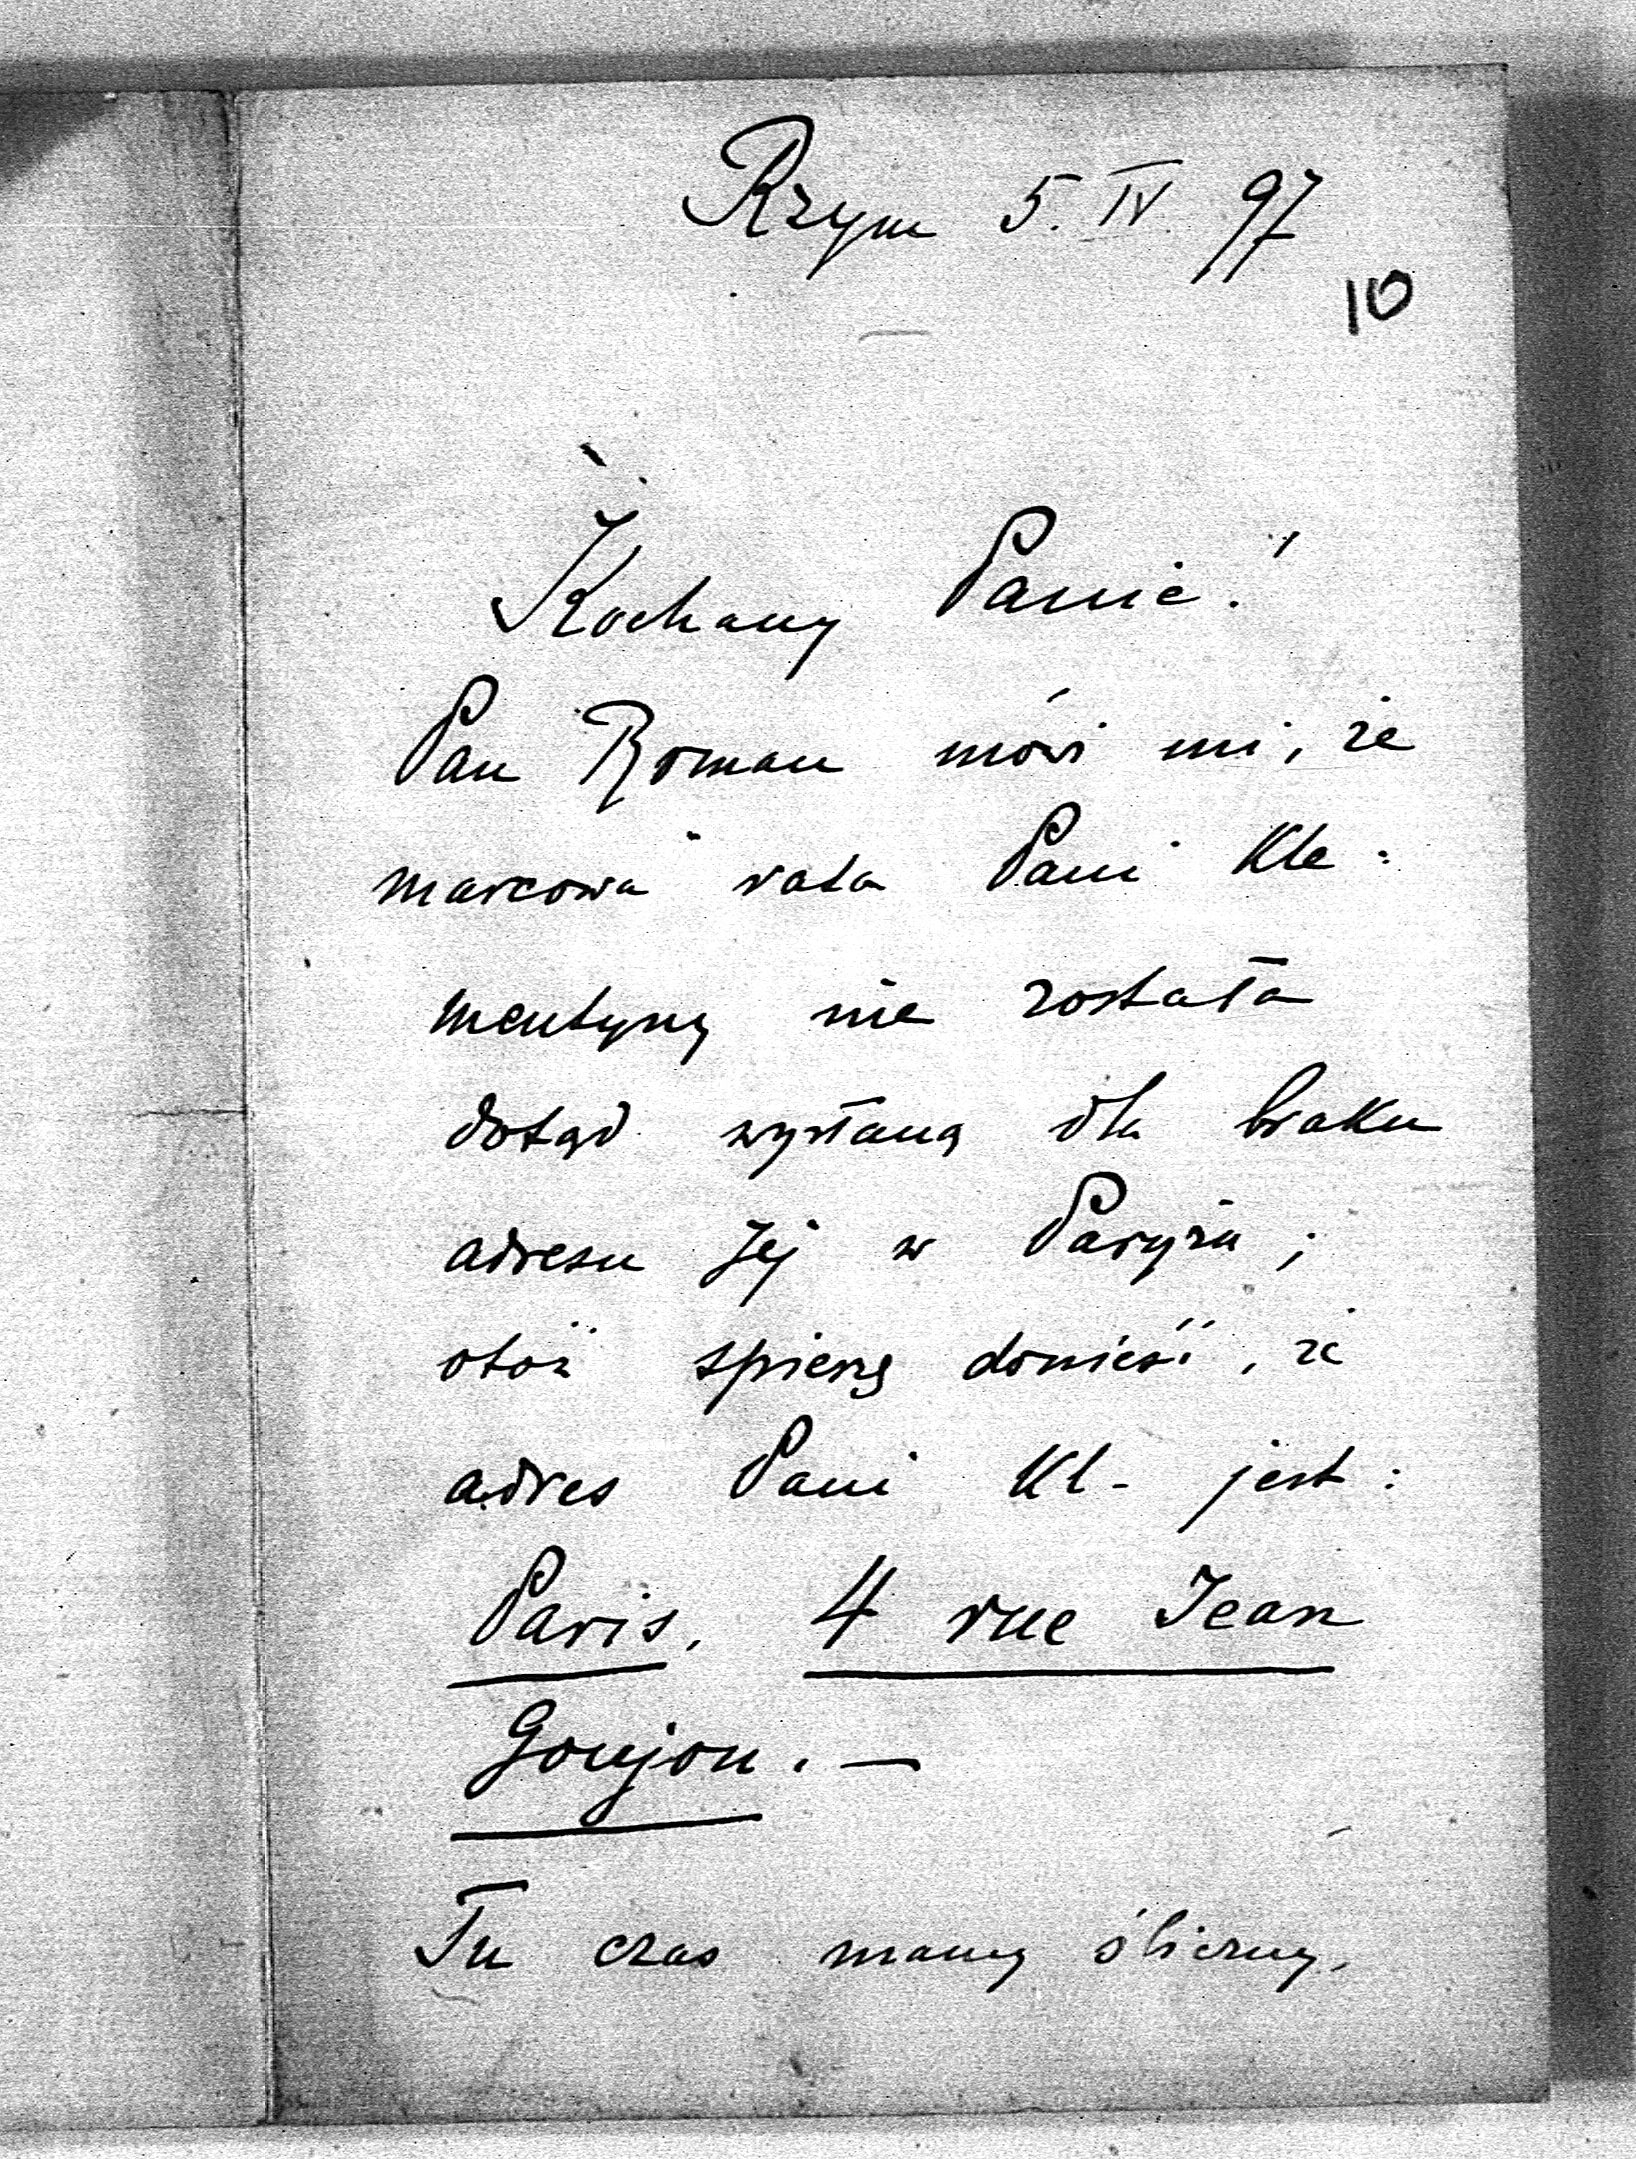 Rzym 5. IV. 97
10
Kochany Panie!
Pan Roman mówi mi, że
marcowa rata Pani Kle-
mentyny nie została
dotąd wysłaną dla braku
adresu Jej w Paryżu;
otóż spieszę donieść, że
adres Pani Kl- jest:
Paris, 4 rue Jean
Goujon. —
Tu czas mamy śliczny,